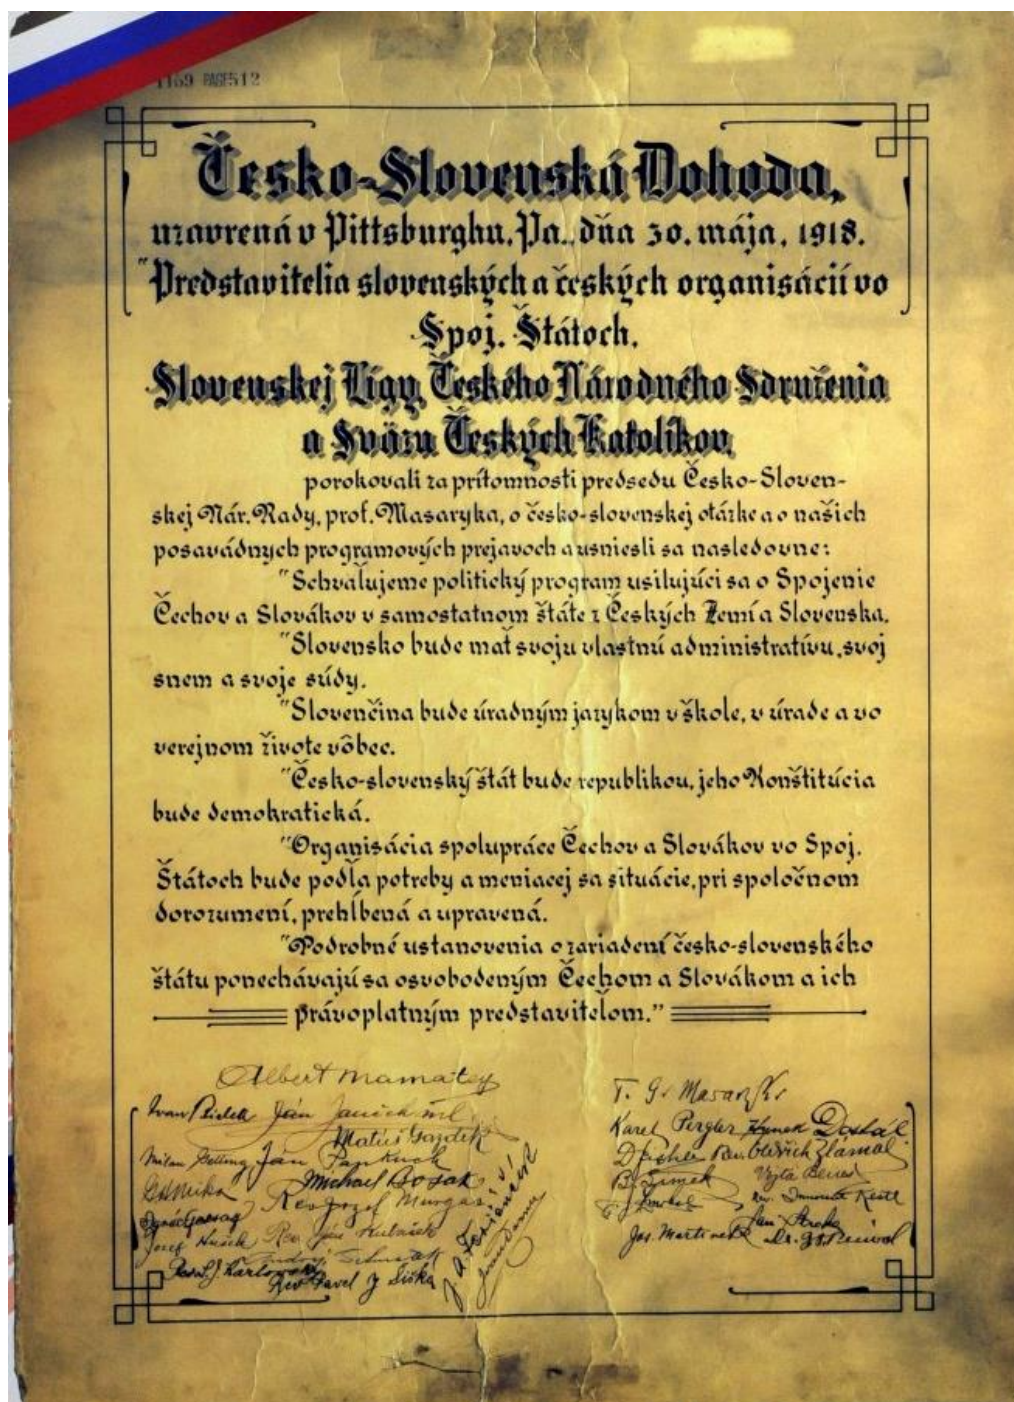 1169 PAGE512
Česko-Slovenská Dohoda,
uzavrená v Pittsburghu, Pa., dňa 30. mája, 1918.
"Predstavitelia slovenských a českých organisácií vo
Spoj. Štátoch,
Slovenskej Ligy, Českého Národného Sdruženia
a Sväzu Českých Katolíkov,
porokovali za prítomnosti predsedu Česko-Sloven-
skej Nár. Rady, prof. Masaryka, o česko-slovenskej otázke a o našich
posavádnych programových prejavoch a usniesli sa nasledovne:
"Schvaľujeme politický program usilujúci sa o Spojenie
Čechov a Slovákov v samostatnom štáte z Českých Zemí a Slovenska.
"Slovensko bude mať svoju vlastnú administratívu, svoj
snem a svoje súdy.
"Slovenčina bude úradným jazykom v škole, v úrade a vo
verejnom živote vôbec.
"Česko-slovenský štát bude republikou, jeho Konštitúcia
bude demokratická.
"Organisácia spolupráce Čechov a Slovákov vo Spoj.
Štátoch bude podľa potreby a meniacej sa situácie, pri spoločnom
dorozumení, prehĺbená a upravená.
"Podrobné ustanovenia o zariadení česko-slovenského
štátu ponechávajú sa osvobodeným Čechom a Slovákom a ich
právoplatným predstaviteľom."
Albert Mamatey
Ivan Bielek Ján Janček ml
Matúš Gazdík
Milan Getting Ján Pankuch
Michael Bosák
Rev Jozef Murgaš
Ignác Gessay
Jozef Hušek Rev. Ján Kubašek
Rev. L. J. Karlovský
Rev Pavel J Šiška
T. G. Masaryk
Karel Pergler Hynek Dostál
Rev. Oldřich Zlámal
B. Šimek Vojta Beneš
Rev. Innocent Kestl
Jan Straka
Jos. Martinek